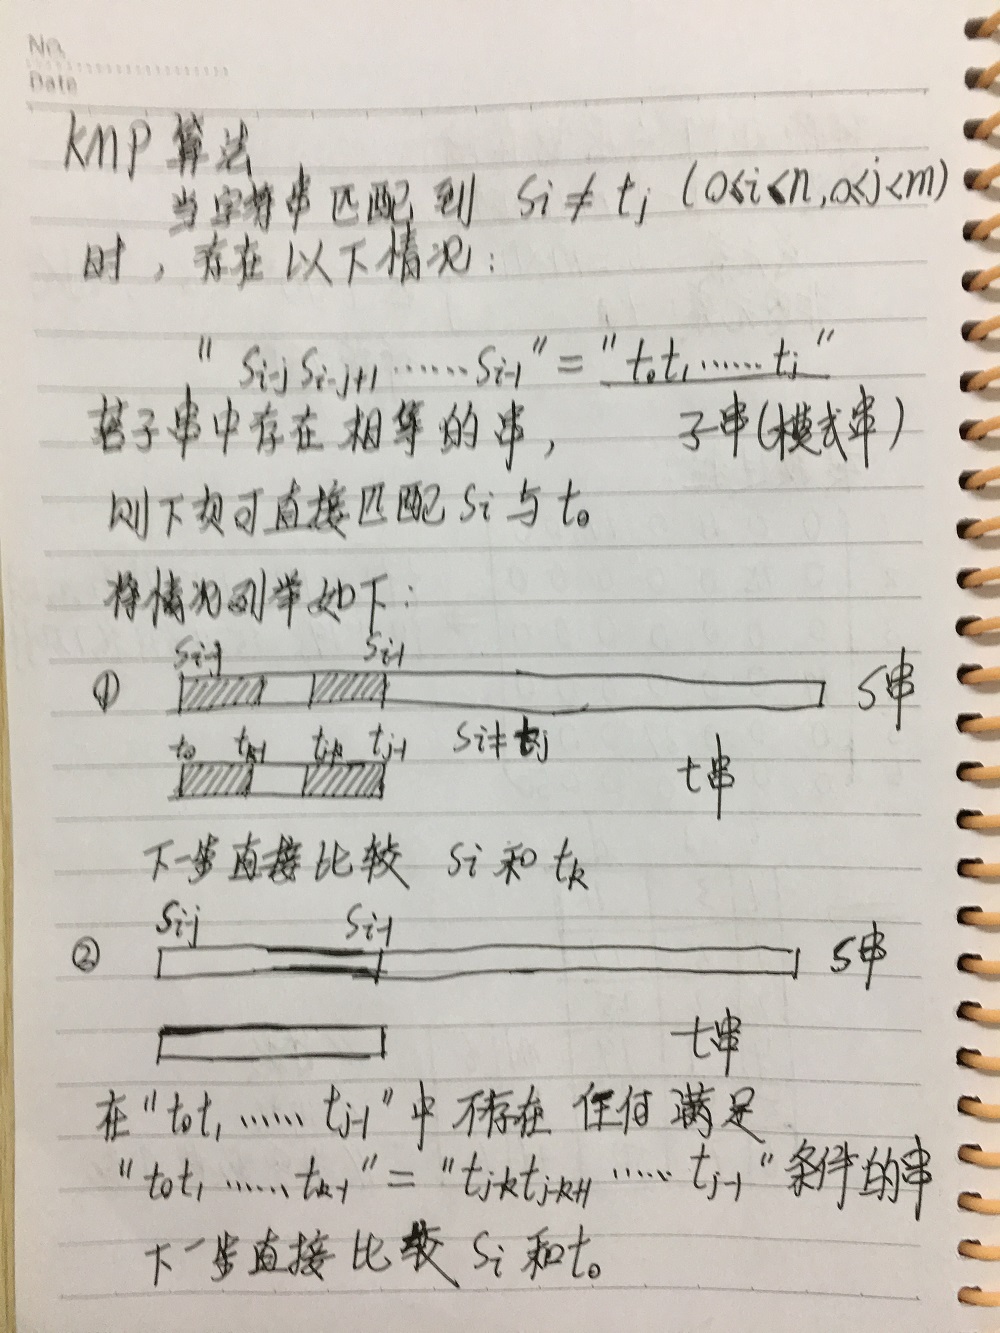 No.
Date
KMP 算法
当字符串匹配到 Si ≠ tj (0<i<n,0<j<m)
时，存在以下情况：
"Si-j Si-j+1 ······ Si-1" = "t0t1 ······ tj"
若子串中存在相等的串， 子串(模式串)
则下次可直接匹配 Si 与 t0
将情况列举如下：
Si-j Si-1
① S串
t0 tk-1 tj-k tj-1 Si≠tj
t串
下一步直接比较 Si 和 tk
Si-j Si-1
② S串
t串
在"t0t1 ······ tj-1"中不存在任何满足
"t0t1 ······ tk-1" = "tj-ktj-k+1 ······ tj-1"条件的串
下一步直接比较 Si 和 t0